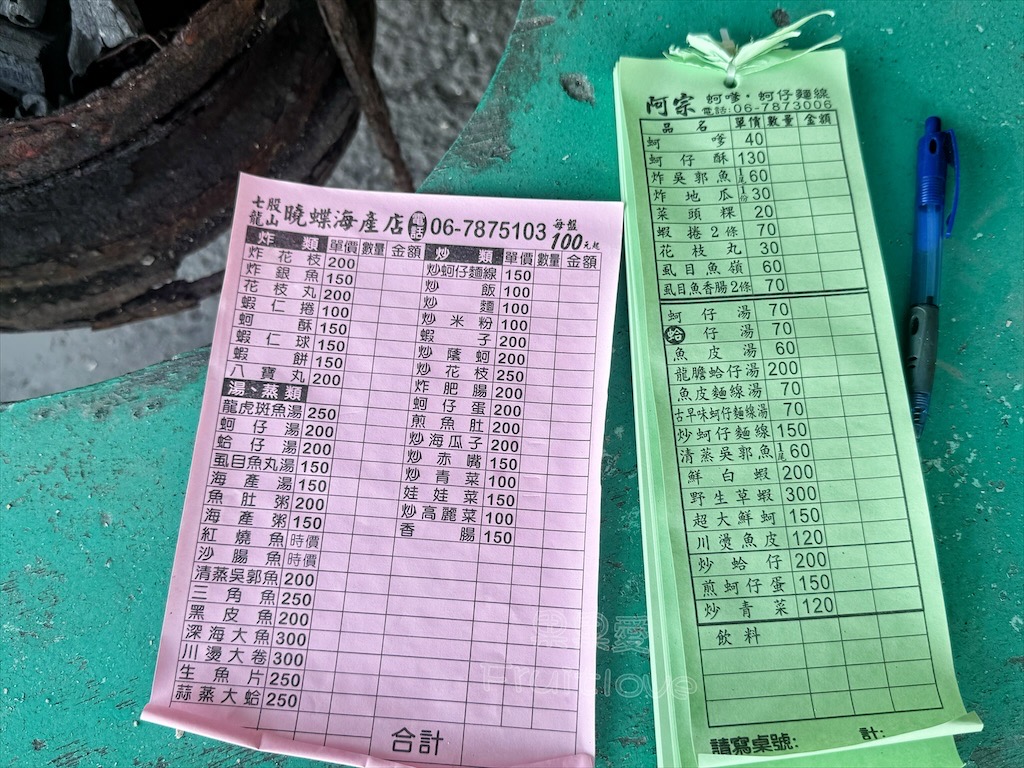 七股龍山 曉蝶海產店 電話 06-7875103 每盤100元起
炸類 單價 數量 金額
炸花枝 200
炸銀魚 150
花枝丸 200
蝦仁捲 100
蚵酥 150
蝦仁球 150
蝦餅 150
八寶丸 200
湯、蒸類
龍虎斑魚湯 250
蚵仔湯 200
蛤仔湯 200
虱目魚丸湯 150
海產湯 150
魚肚粥 200
海產粥 150
紅燒魚 時價
沙腸魚 時價
清蒸吳郭魚 200
三角魚 250
黑皮魚 200
深海大魚 300
川燙大卷 300
生魚片 250
蒜蒸大蛤 250
炒類 單價 數量 金額
炒蚵仔麵線 150
炒飯 100
炒麵 100
炒米粉 100
蝦子 200
炒蔭蚵 200
炒花枝 250
炸肥腸 200
蚵仔蛋 200
煎魚肚 200
炒海瓜子 200
炒赤嘴 150
炒青菜 100
娃娃菜 150
炒高麗菜 100
香腸 150
合計
阿宗 蚵嗲·蚵仔麵線
電話:06-7873006
品名 單價 數量 金額
蚵嗲 40
蚵仔酥 130
炸吳郭魚 1尾60
炸地瓜 1份30
菜頭粿 20
蝦捲2條 70
花枝丸 30
虱目魚嶺 60
虱目魚香腸2條 70
蚵仔湯 70
蛤仔湯 70
魚皮湯 60
龍膽蛤仔湯 200
魚皮麵線湯 70
古早味蚵仔麵線湯 70
炒蚵仔麵線 150
清蒸吳郭魚 1尾60
鮮白蝦 200
野生草蝦 300
超大鮮蚵 150
川燙魚皮 120
炒蛤仔 200
煎蚵仔蛋 150
炒青菜 120
飲料
請寫桌號: 計:
Fruitlove